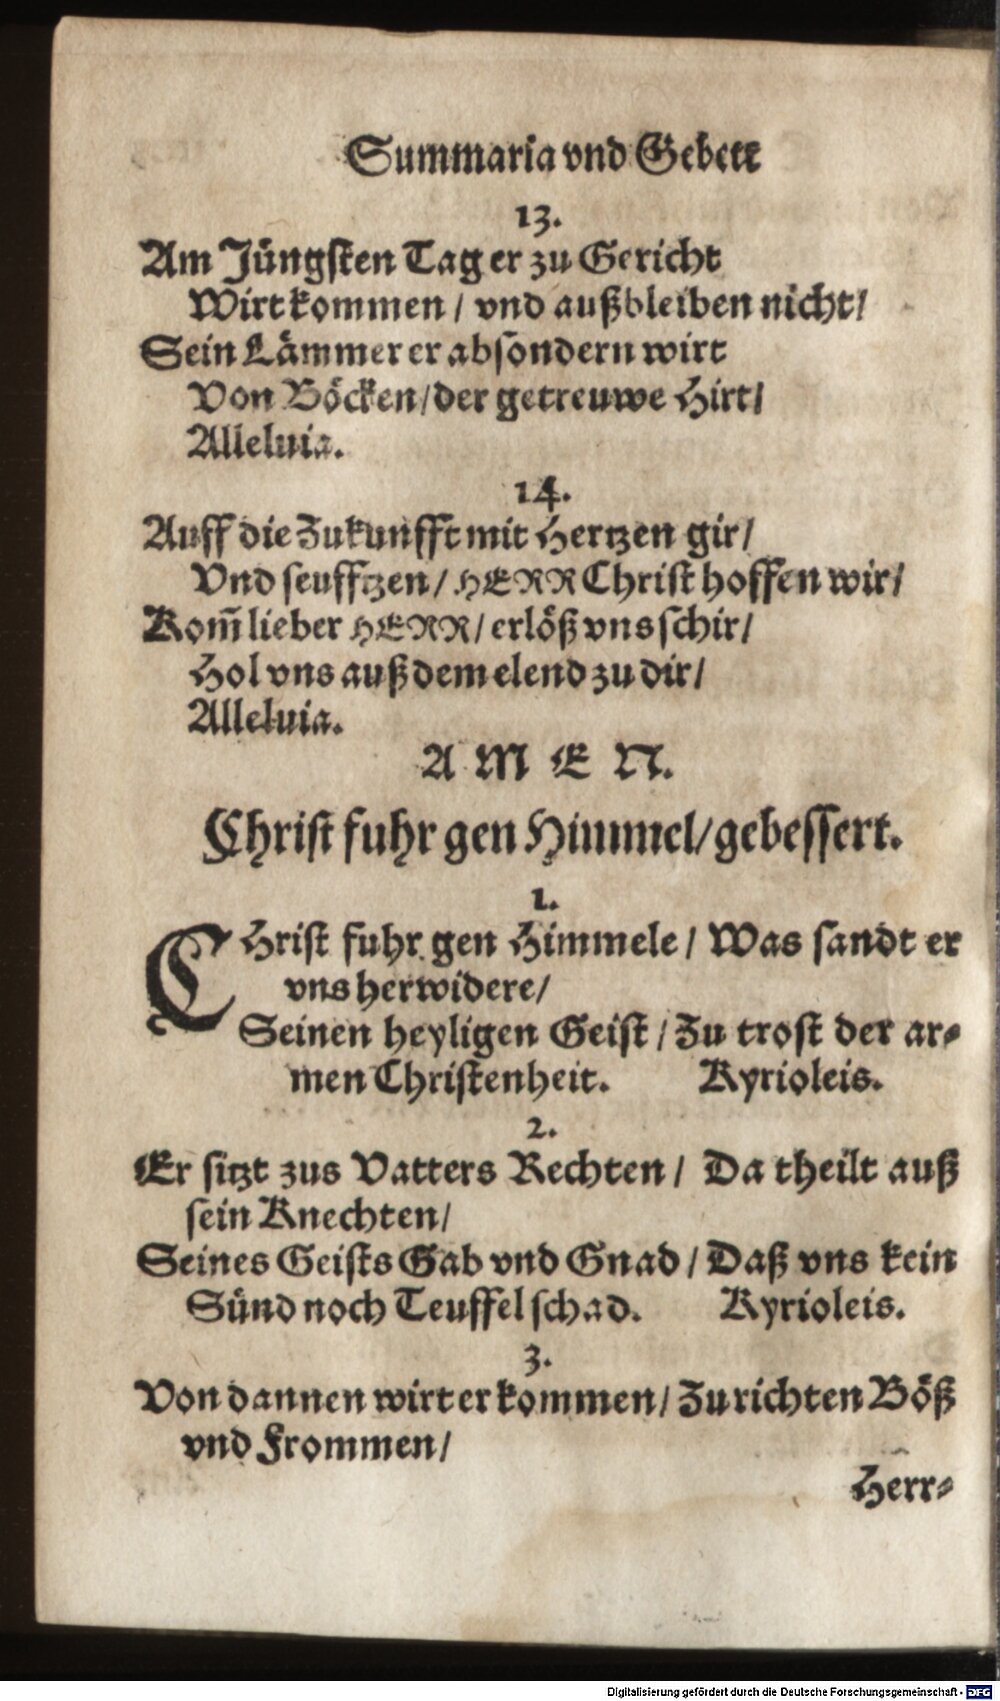 Summaria vnd Gebett
13.
Am Jüngsten Tag er zu Gericht
Wirt kommen / vnd außbleiben nicht /
Sein Lämmer er absondern wirt
Von Böcken / der getreuwe Hirt /
Alleluia.
14.
Auff die Zukunfft mit Hertzen gir /
Vnd seufftzen / HERR Christ hoffen wir /
Kom̃ lieber HERR / erlöß vns schir /
Hol vns auß dem elend zu dir /
Alleluia.
A M E N.
Christ fuhr gen Himmel / gebessert.
1.
CHrist fuhr gen Himmele / Was sandt er
vns herwidere /
Seinen heyligen Geist / Zu trost der ar-
men Christenheit. Kyrioleis.
2.
Er sitzt zus Vatters Rechten / Da theilt auß
sein Knechten /
Seines Geists Gab vnd Gnad / Daß vns kein
Sünd noch Teuffel schad. Kyrioleis.
3.
Von dannen wirt er kommen / Zu richten Böß
vnd Frommen /
Herr-
Digitalisierung gefördert durch die Deutsche Forschungsgemeinschaft - DFG